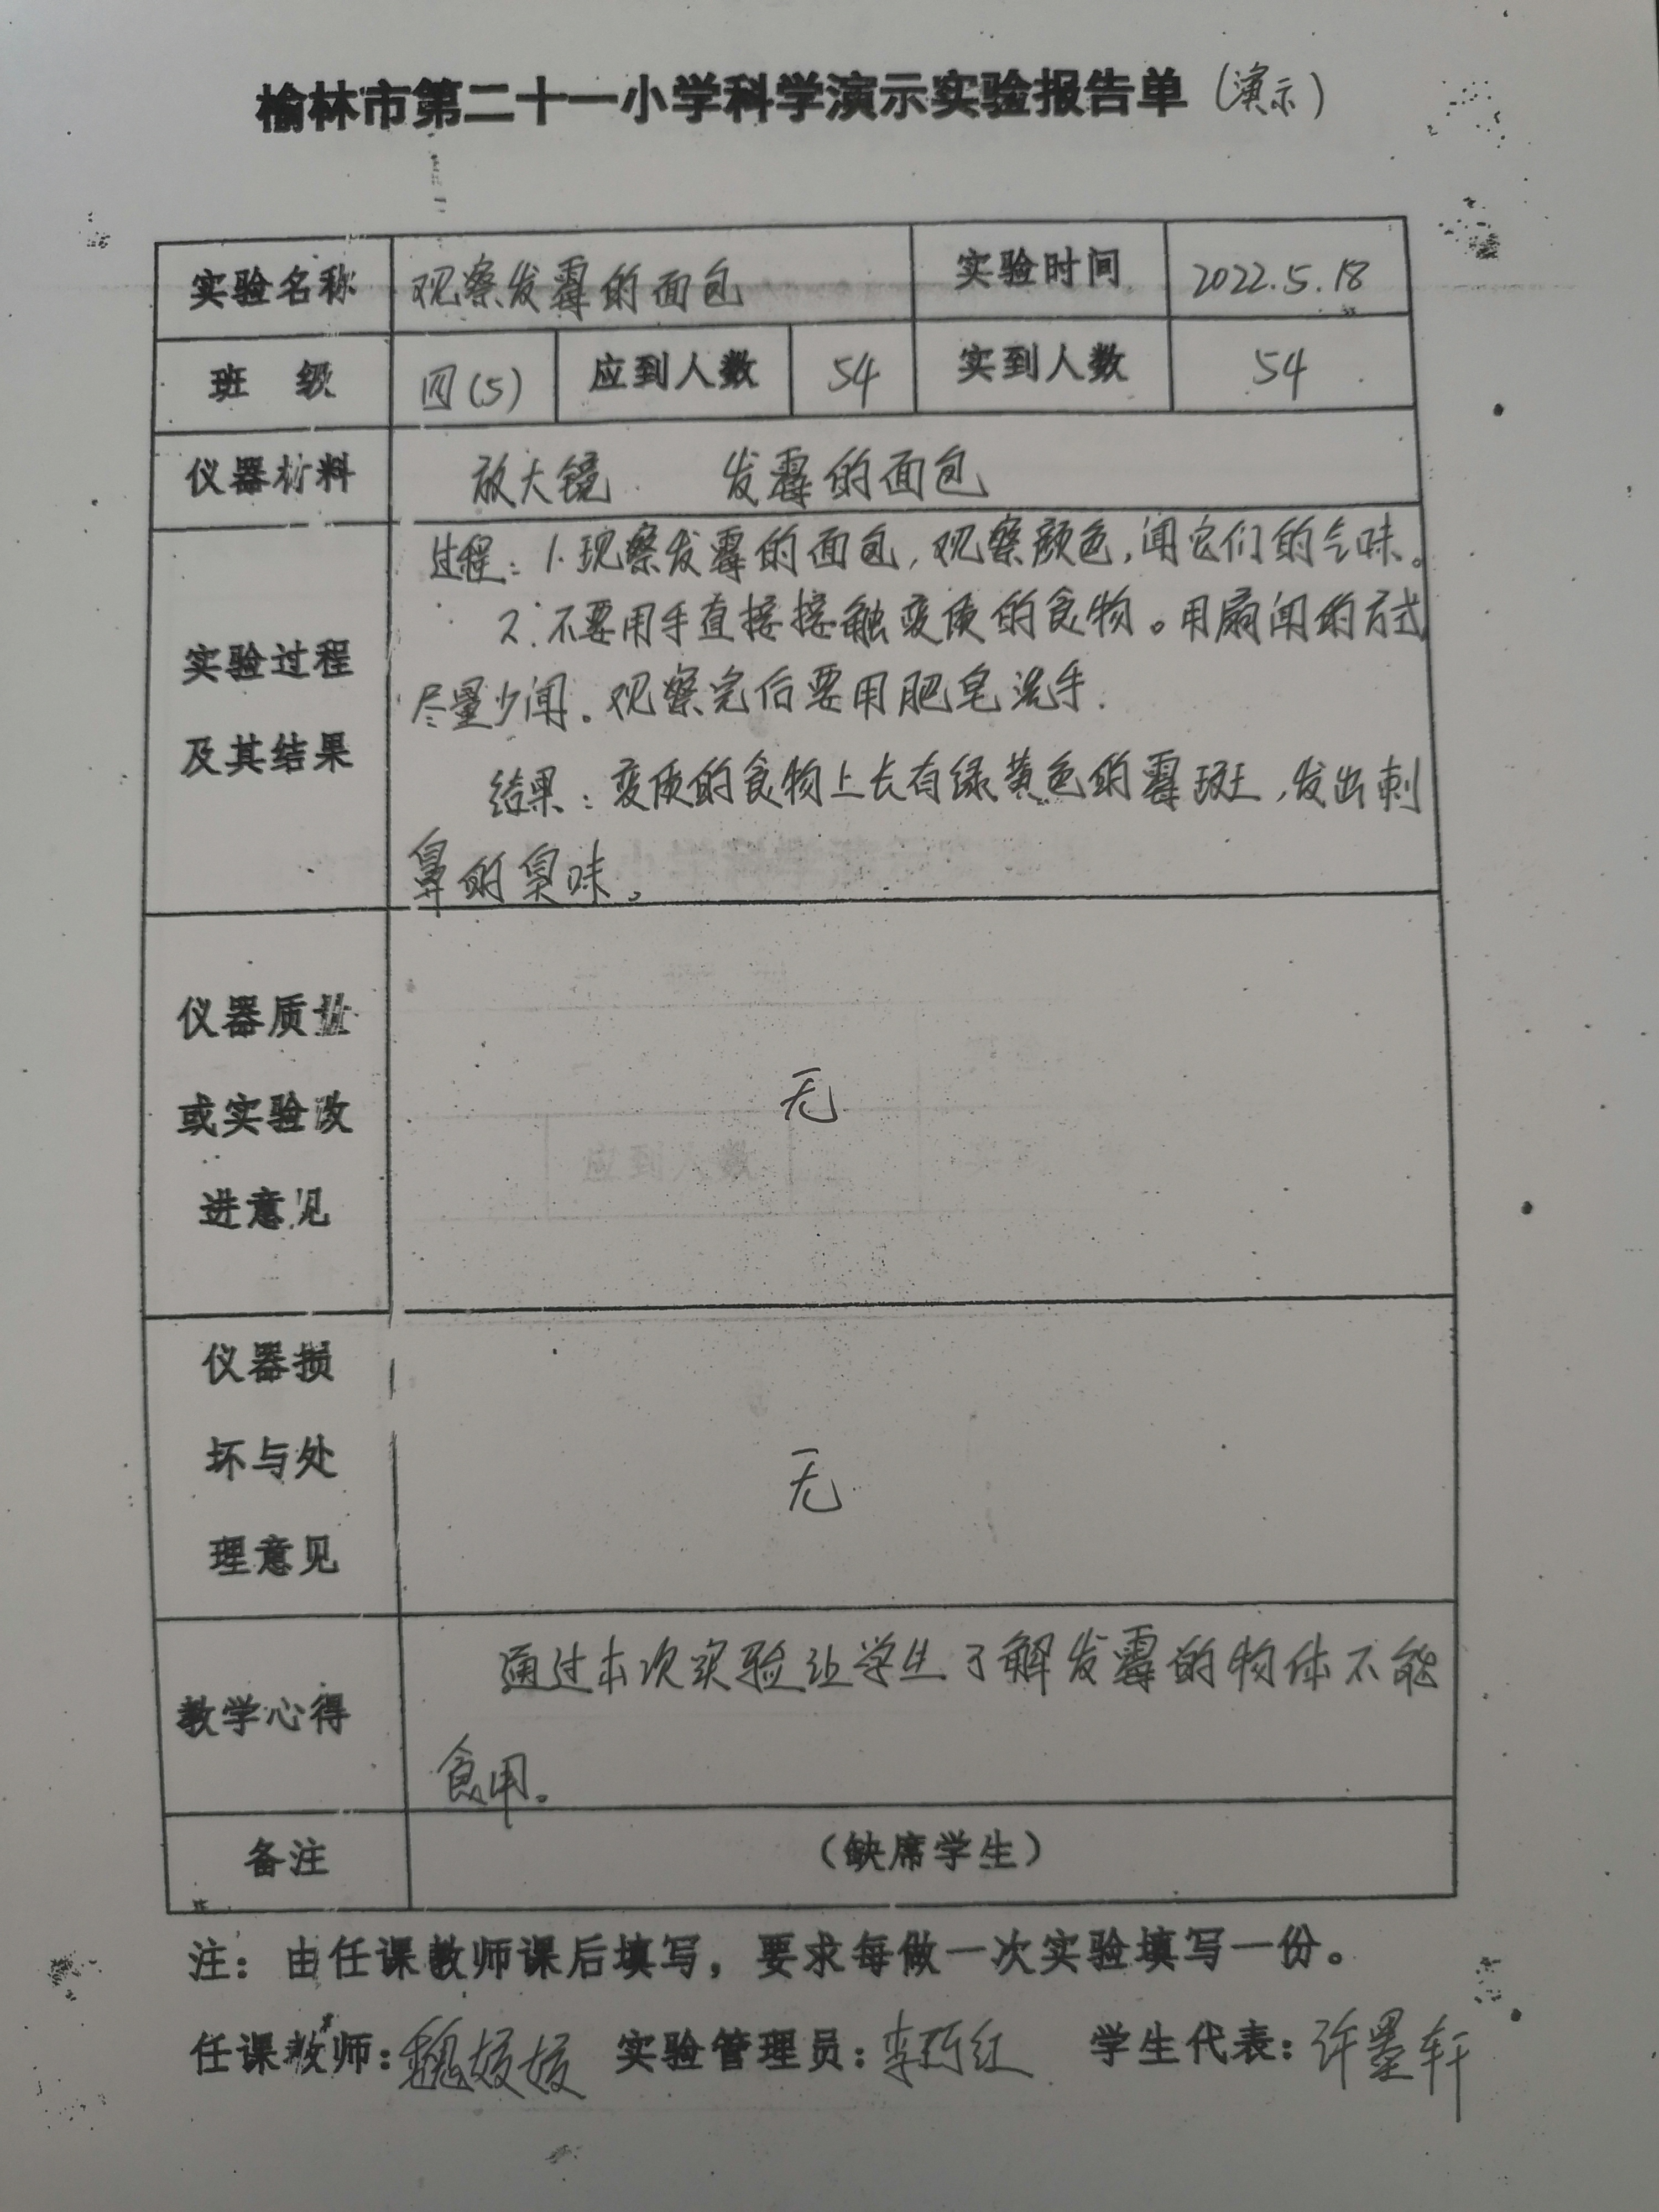 榆林市第二十一小学科学演示实验报告单(演示)
实验名称 观察发霉的面包 实验时间 2022.5.18
班 级 四(5) 应到人数 54 实到人数 54
仪器材料 放大镜 发霉的面包
实验过程
及其结果
过程:1.观察发霉的面包,观察颜色,闻它们的气味。
2.不要用手直接接触变质的食物。用扇闻的方式
尽量少闻。观察完后要用肥皂洗手.
结果:变质的食物上长有绿黄色的霉斑,发出刺
鼻的臭味。
仪器质量
或实验改
进意见
无
仪器损
坏与处
理意见
无
教学心得
通过本次实验让学生了解发霉的物体不能
食用。
备注 (缺席学生)
注:由任课教师课后填写,要求每做一次实验填写一份。
任课教师:魏媛媛 实验管理员:李 红 学生代表:许墨轩